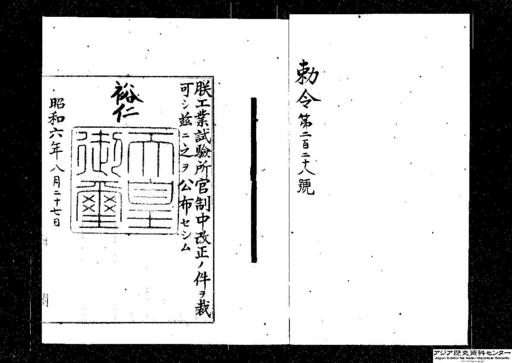 勅令第二百二十八號
朕工業試驗所官制中改正ノ件ヲ裁
可シ茲ニ之ヲ公布セシム
裕仁
天皇
御璽
昭和六年八月二十七日
アジア歴史資料センター
Japan Center for Asian Historical Records